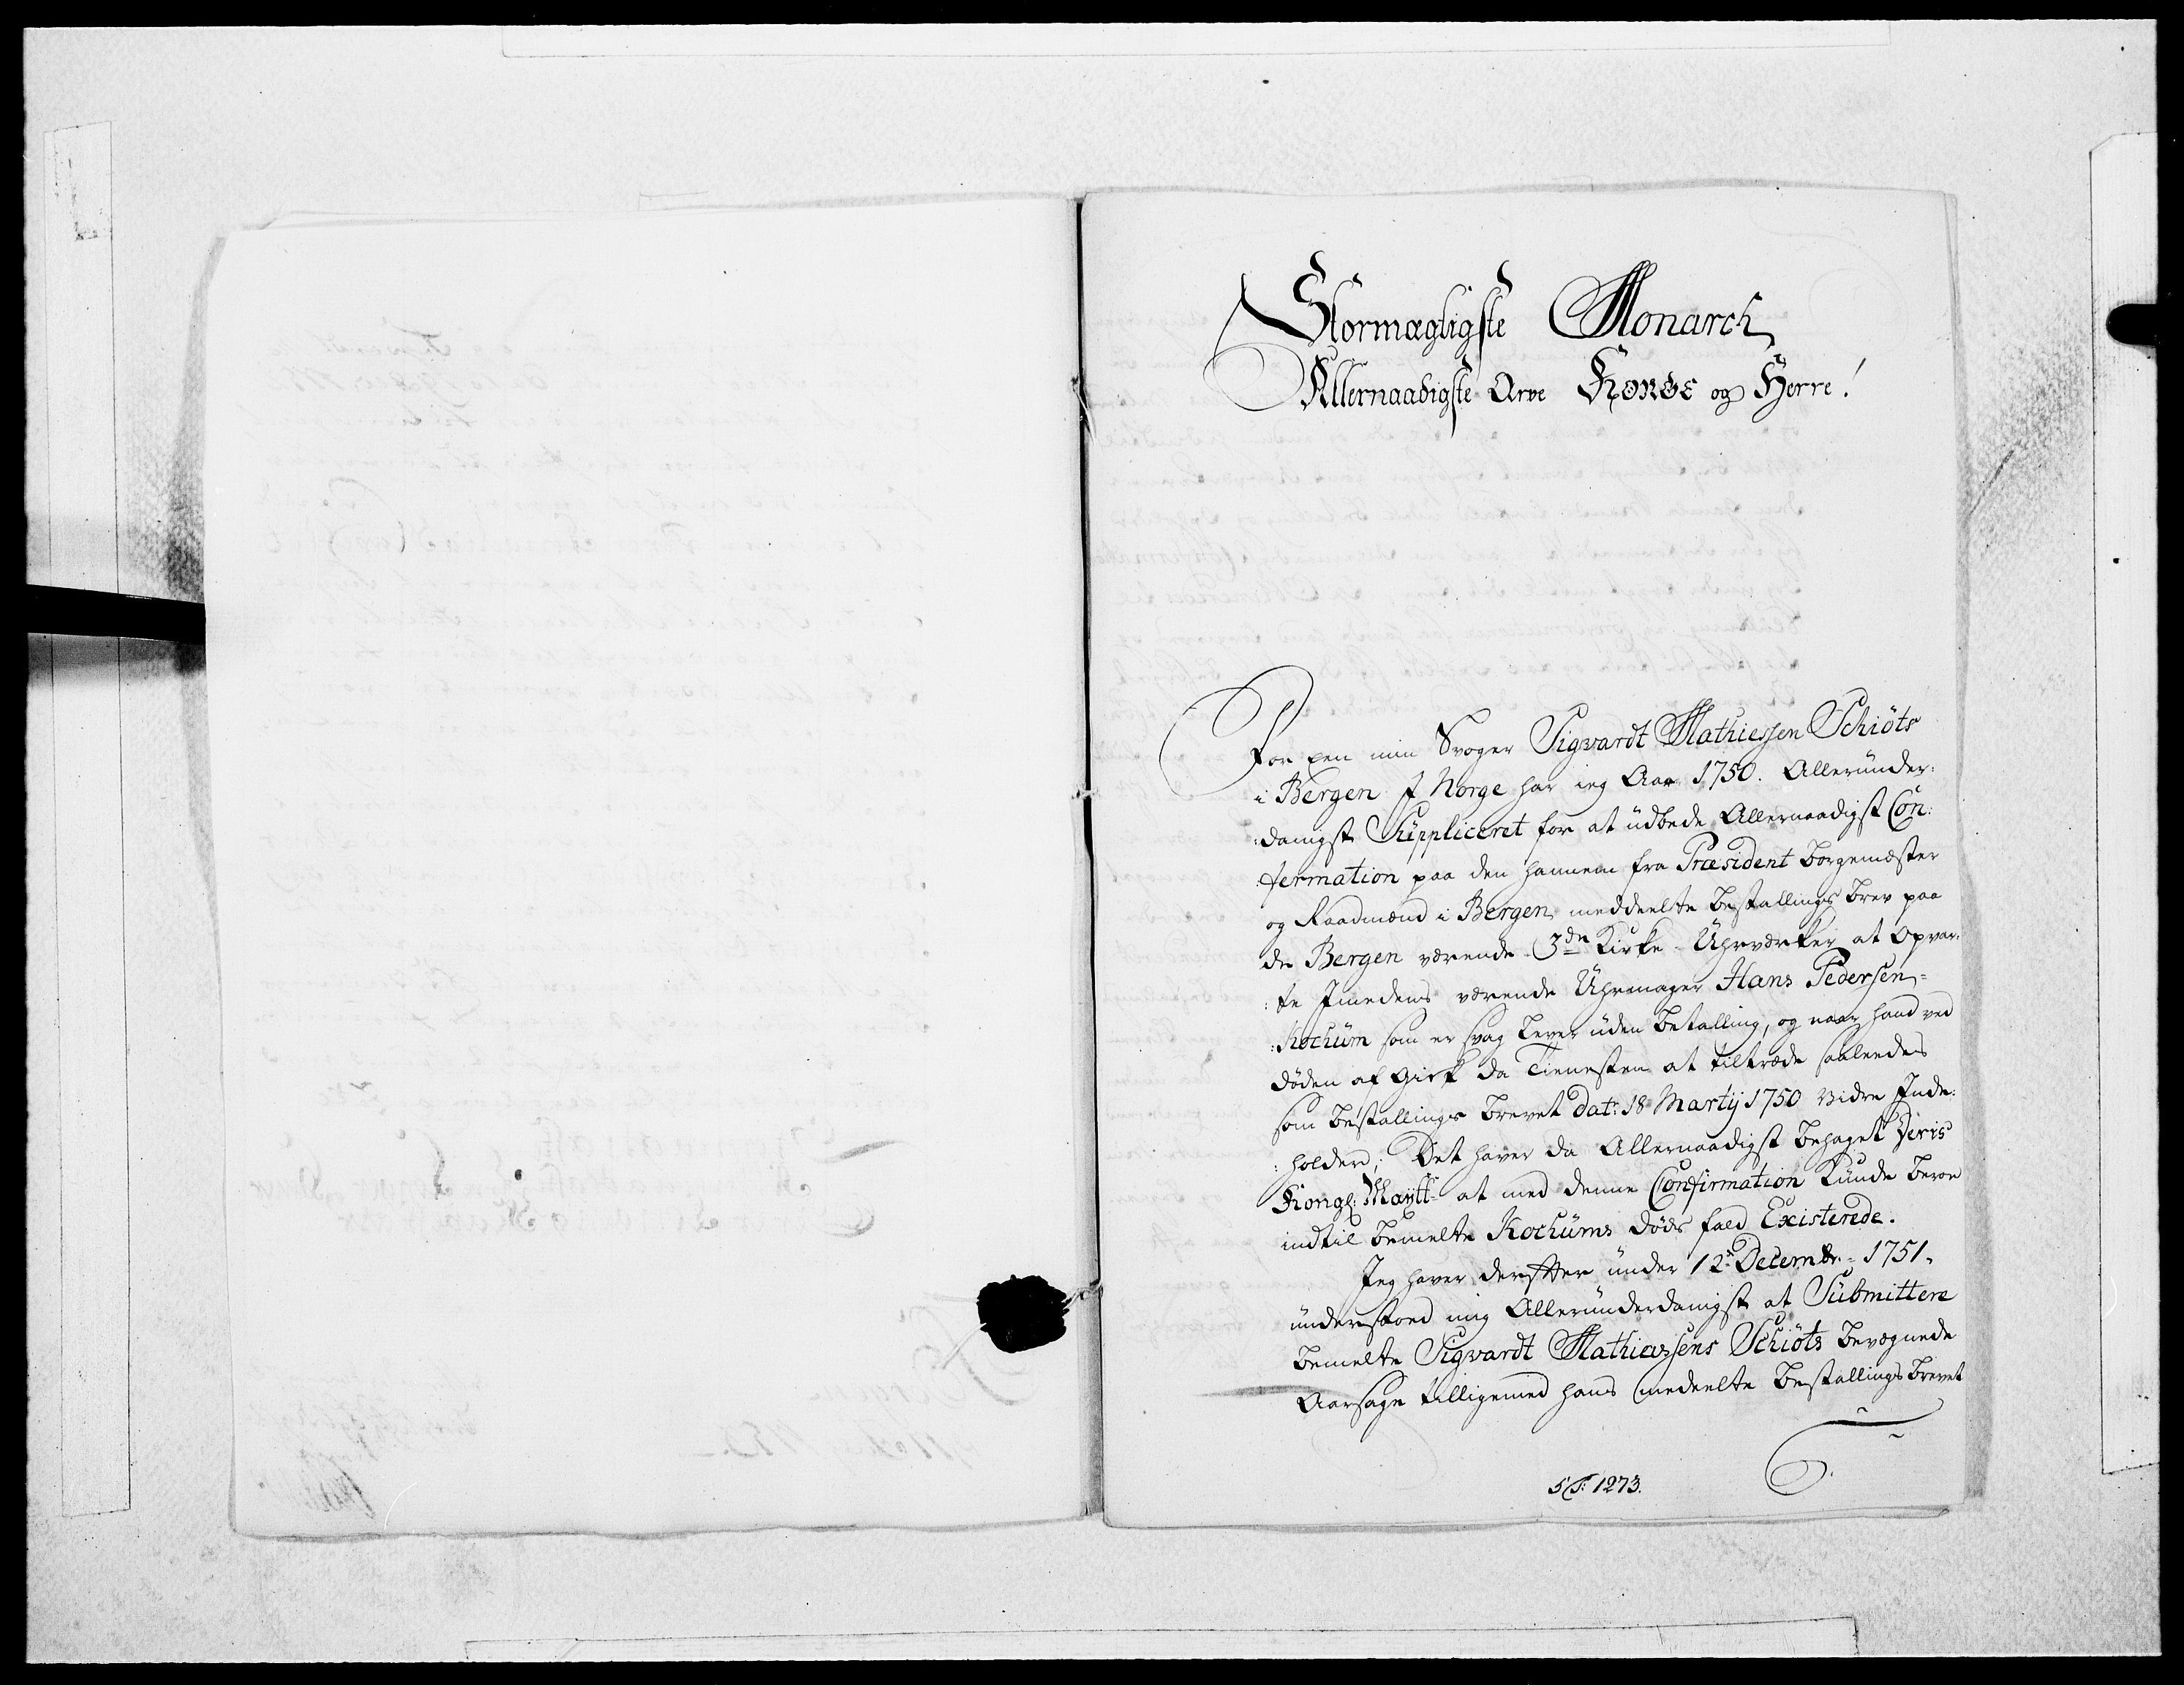 Stormægtigste Monarch
Allernaadigste Arve Konge og Herre!
For een min Svoger Sigvardt Mathiessen Schiöts
i Bergen I Norge har ieg Aar 1750. Allerunder:
:danigst Suppliceret for at udbede Allernaadigst Con:
:fermation paa den hannem fra Præsident Borgemæster
og Raadmænd i Bergen meddeelte Bestallings Brev paa
de Bergen værende 3de Kirke Uhrværker at Opvar:
:te Imedens værende Uhrmager Hans Pedersen
:Kochum som er svag Lever uden Betalling, og naar hand ved
døden af Gick da Tienesten at tiltræde saaleedes
som Bestallings Brevet dat: 18 Martij 1750 Videre Inde:
:holder; Det haver da Allernaadigst behaget Deris
Kongl: Maytt at med denne Confirmation Kunde beroe
indtil bemelte Kochums døds fald Existerede.
Jeg haver derefter under 12 Decembr: 1751.
understaaed mig Allerunderdanigst at Submittere
bemelte Sigvardt Mathiassens Schiöts bevægnede
Aarsage tilligemed hans meddeelte Bestallings Brevet
1273.